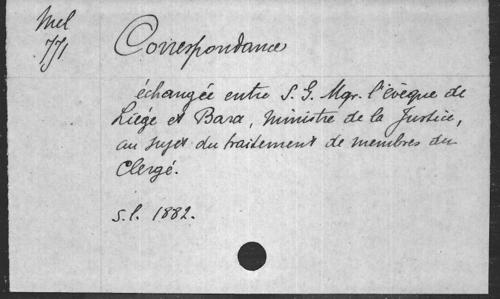 Mel
771
Correspondance
échangée entre S. G. Mgr. l'évêque de
Liége et Bara, Ministre de la Justice,
au sujet du traitement de membres du
Clergé.
s.l. 1882.